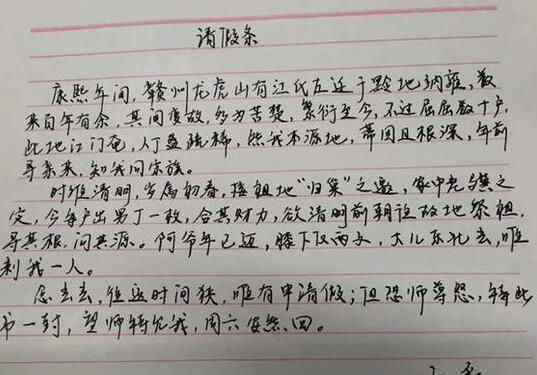 请假条
康熙年间，赣州龙虎山有江氏左迁于黔地纳雍，数
来百年有余，其间变故，多为苦楚，繁衍至今，不过屈屈数十户，
此地江门奄，人丁益疏稀，然我本源地，蒂固且根深，年前
寻亲来，知我同宗族。
时维清明，岁属初春，接祖地“归巢”之邀，家中老与
定，今每户出男丁一枚，合其财力，欲清明前朝往故地祭祖，
寻其根，问其源。阿爷年已迈，膝下仅两子，大儿东北去，唯
剩我一人。
念去去，往返时间狭，唯有申请假；但恐师尊怒，特此
书一封，望师特允我，周六安然回。